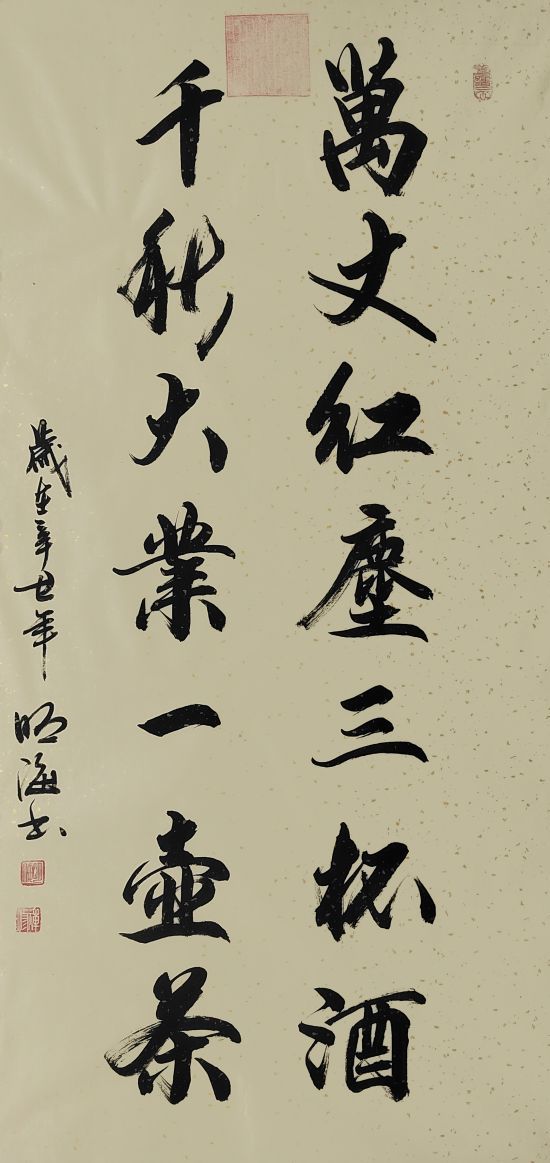 萬丈紅塵三杯酒
千秋大業一壺茶
歲在辛丑年
明海書